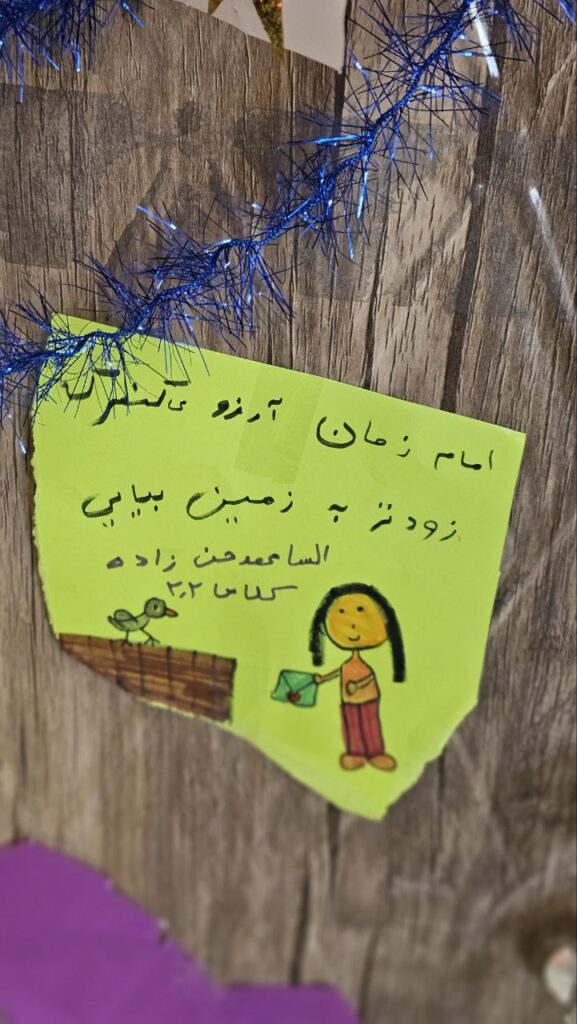 امام زمان آرزو میکنم که
زودتر به زمین بیایی
السا محمدحسن زاده
کلاس ۲٫۲